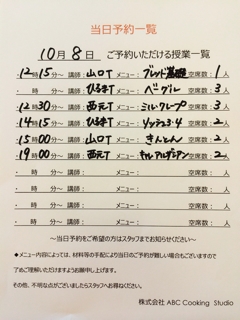 当日予約一覧
10月8日 ご予約いただける授業一覧
・12時15分~ 講師:山口T メニュー:ブレッド基礎 空席数:1人
・ 時 分~ 講師:ひるまT メニュー:ベーグル 空席数:3人
・12時30分~ 講師:西元T メニュー:ミルクレープ 空席数:3人
・14時15分~ 講師:ひるまT メニュー: 空席数:2人
・15時00分~ 講師:山口T メニュー:きんとん 空席数:2人
・19時00分~ 講師:西元T メニュー: 空席数:2人
・ 時 分~ 講師: メニュー: 空席数: 人
・ 時 分~ 講師: メニュー: 空席数: 人
・ 時 分~ 講師: メニュー: 空席数: 人
~当日予約をご希望の方はスタッフまでお知らせください~
◆メニュー内容によっては、材料等の手配により当日のご予約が難しい場合もございますので
了めご理解いただけますようお願い申し上げます。
その他、不明な点がございましたらスタッフへお尋ねください。
株式会社 ABC Cooking Studio